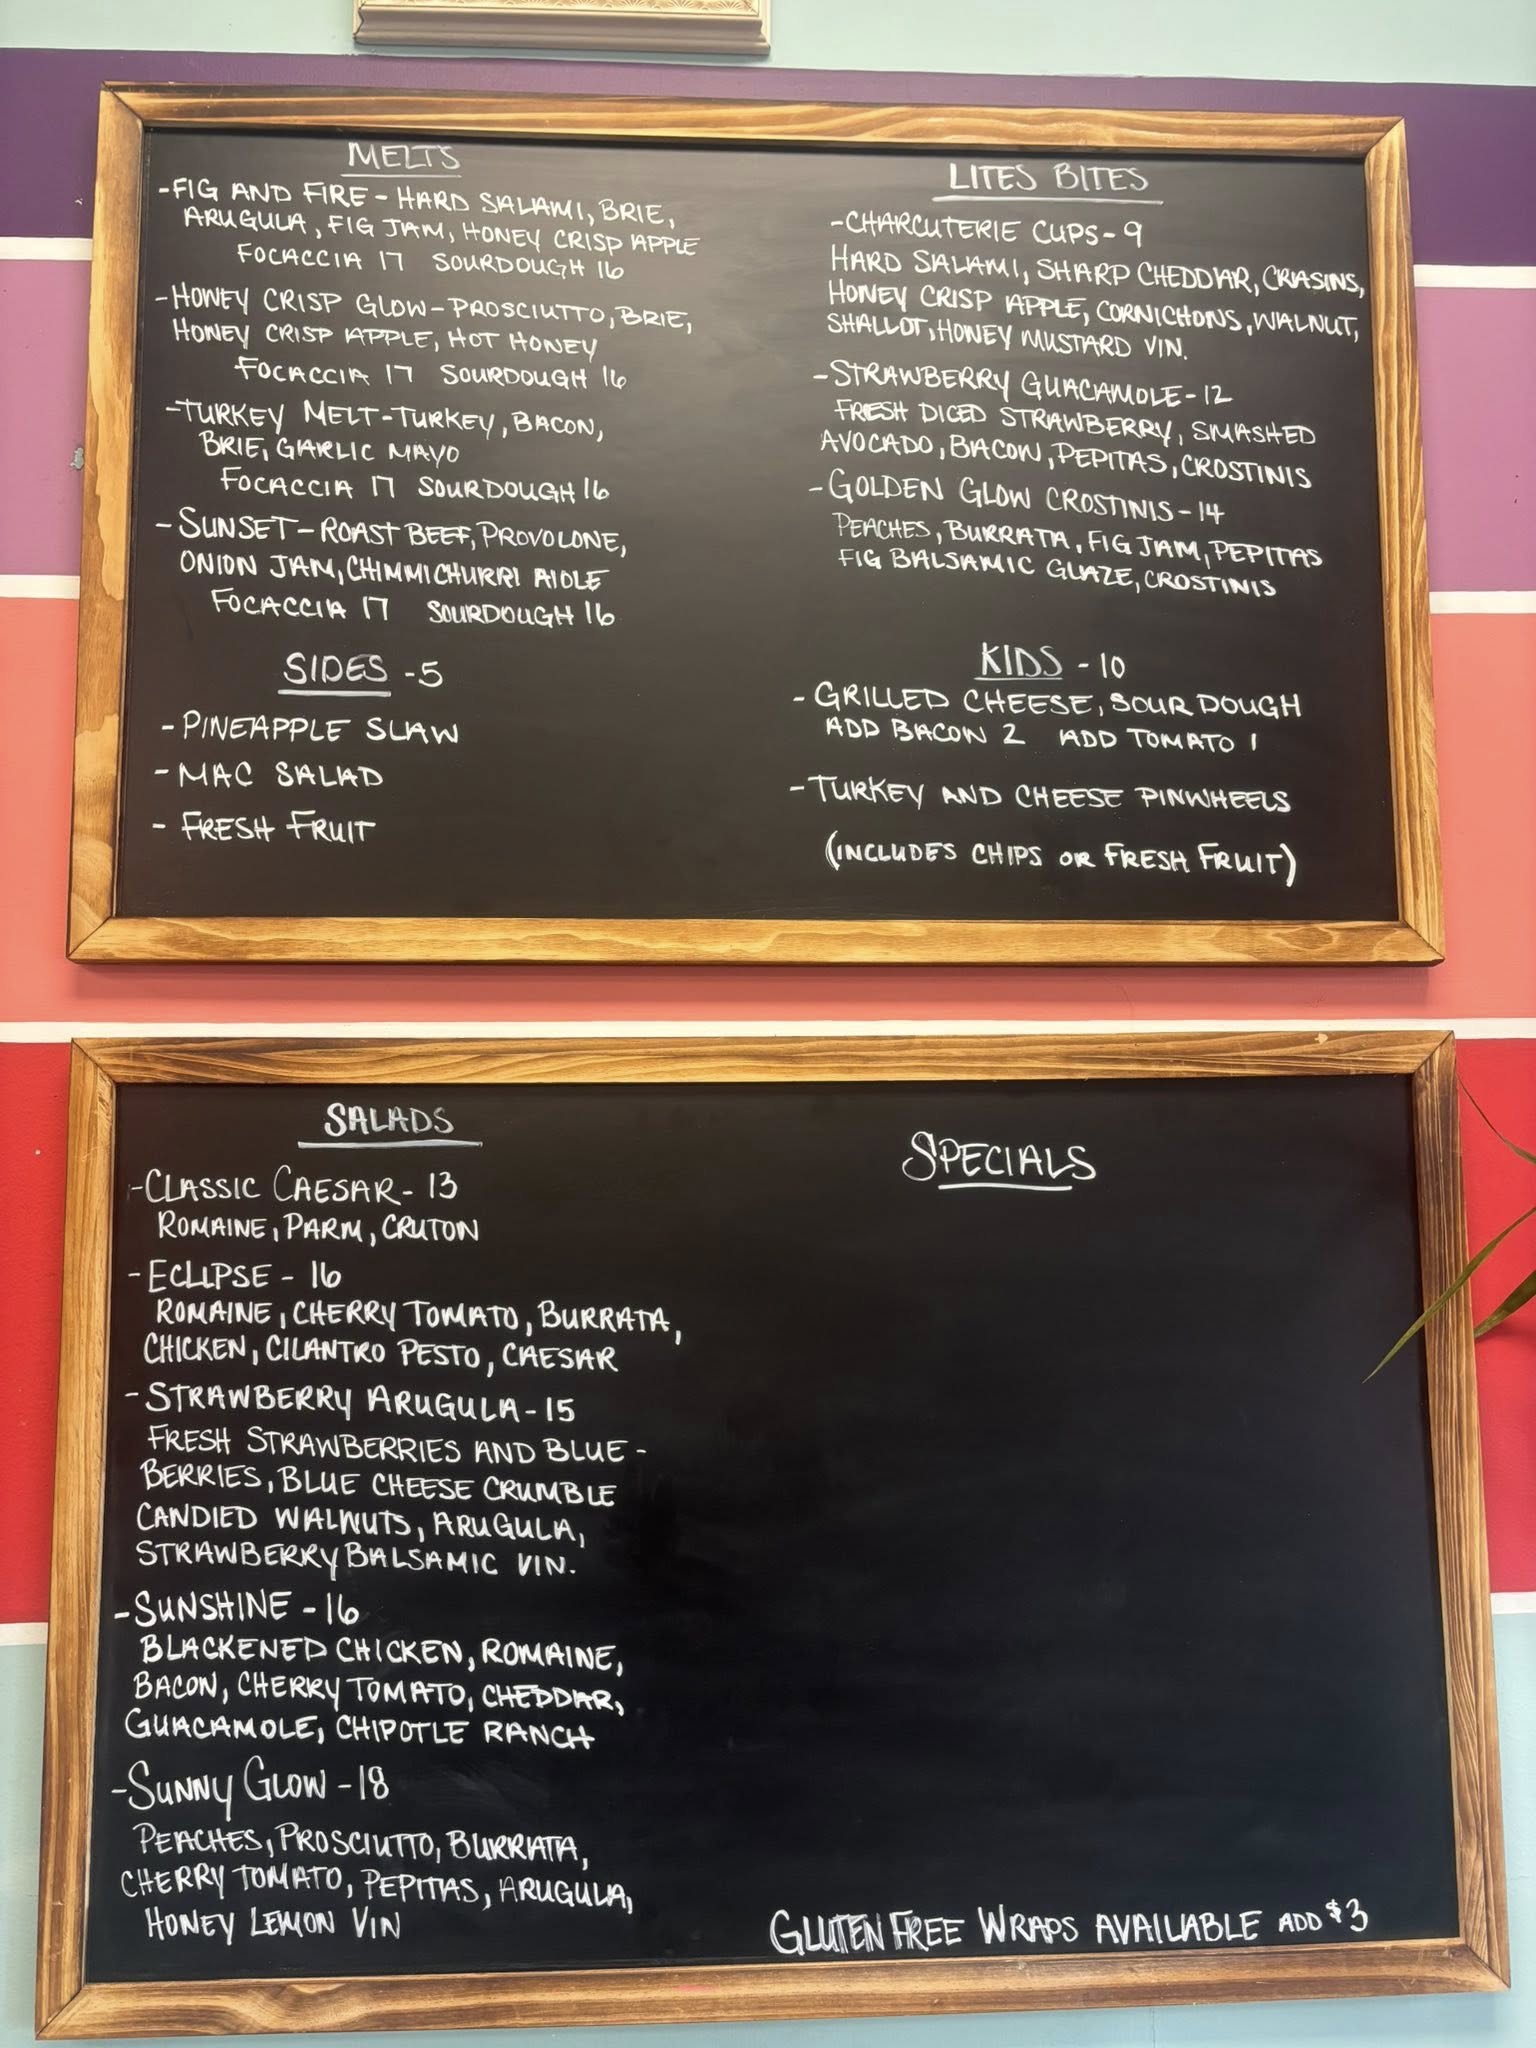 MELTS
-FIG AND FIRE - HARD SALAMI, BRIE,
ARUGULA, FIG JAM, HONEY CRISP APPLE
FOCACCIA 17 SOURDOUGH 16
-HONEY CRISP GLOW-PROSCIUTTO, BRIE,
HONEY CRISP APPLE, HOT HONEY
FOCACCIA 17 SOURDOUGH 16
-TURKEY MELT-TURKEY, BACON,
BRIE, GARLIC MAYO
FOCACCIA 17 SOURDOUGH 16
-SUNSET-ROAST BEEF, PROVOLONE,
ONION JAM, CHIMMICHURRI AIOLE
FOCACCIA 17 SOURDOUGH 16
SIDES -5
-PINEAPPLE SLAW
-MAC SALAD
-FRESH FRUIT
LITES BITES
-CHARCUTERIE CUPS-9
HARD SALAMI, SHARP CHEDDAR, CRASINS,
HONEY CRISP APPLE, CORNICHONS, WALNUT,
SHALLOT, HONEY MUSTARD VIN.
-STRAWBERRY GUACAMOLE-12
FRESH DICED STRAWBERRY, SMASHED
AVOCADO, BACON, PEPITAS, CROSTINIS
-GOLDEN GLOW CROSTINIS-14
PEACHES, BURRATA, FIG JAM, PEPITAS
FIG BALSAMIC GLAZE, CROSTINIS
KIDS -10
-GRILLED CHEESE, SOUR DOUGH
ADD BACON 2 ADD TOMATO 1
-TURKEY AND CHEESE PINWHEELS
(INCLUDES CHIPS OR FRESH FRUIT)
SALADS
-CLASSIC CAESAR-13
ROMAINE, PARM, CRUTON
-ECLIPSE-16
ROMAINE, CHERRY TOMATO, BURRATA,
CHICKEN, CILANTRO PESTO, CAESAR
-STRAWBERRY ARUGULA-15
FRESH STRAWBERRIES AND BLUE-
BERRIES, BLUE CHEESE CRUMBLE
CANDIED WALNUTS, ARUGULA,
STRAWBERRY BALSAMIC VIN.
-SUNSHINE-16
BLACKENED CHICKEN, ROMAINE,
BACON, CHERRY TOMATO, CHEDDAR,
GUACAMOLE, CHIPOTLE RANCH
-SUNNY GLOW-18
PEACHES, PROSCIUTTO, BURRATA,
CHERRY TOMATO, PEPITAS, ARUGULA,
HONEY LEMON VIN
SPECIALS
GLUTEN FREE WRAPS AVAILABLE ADD $3